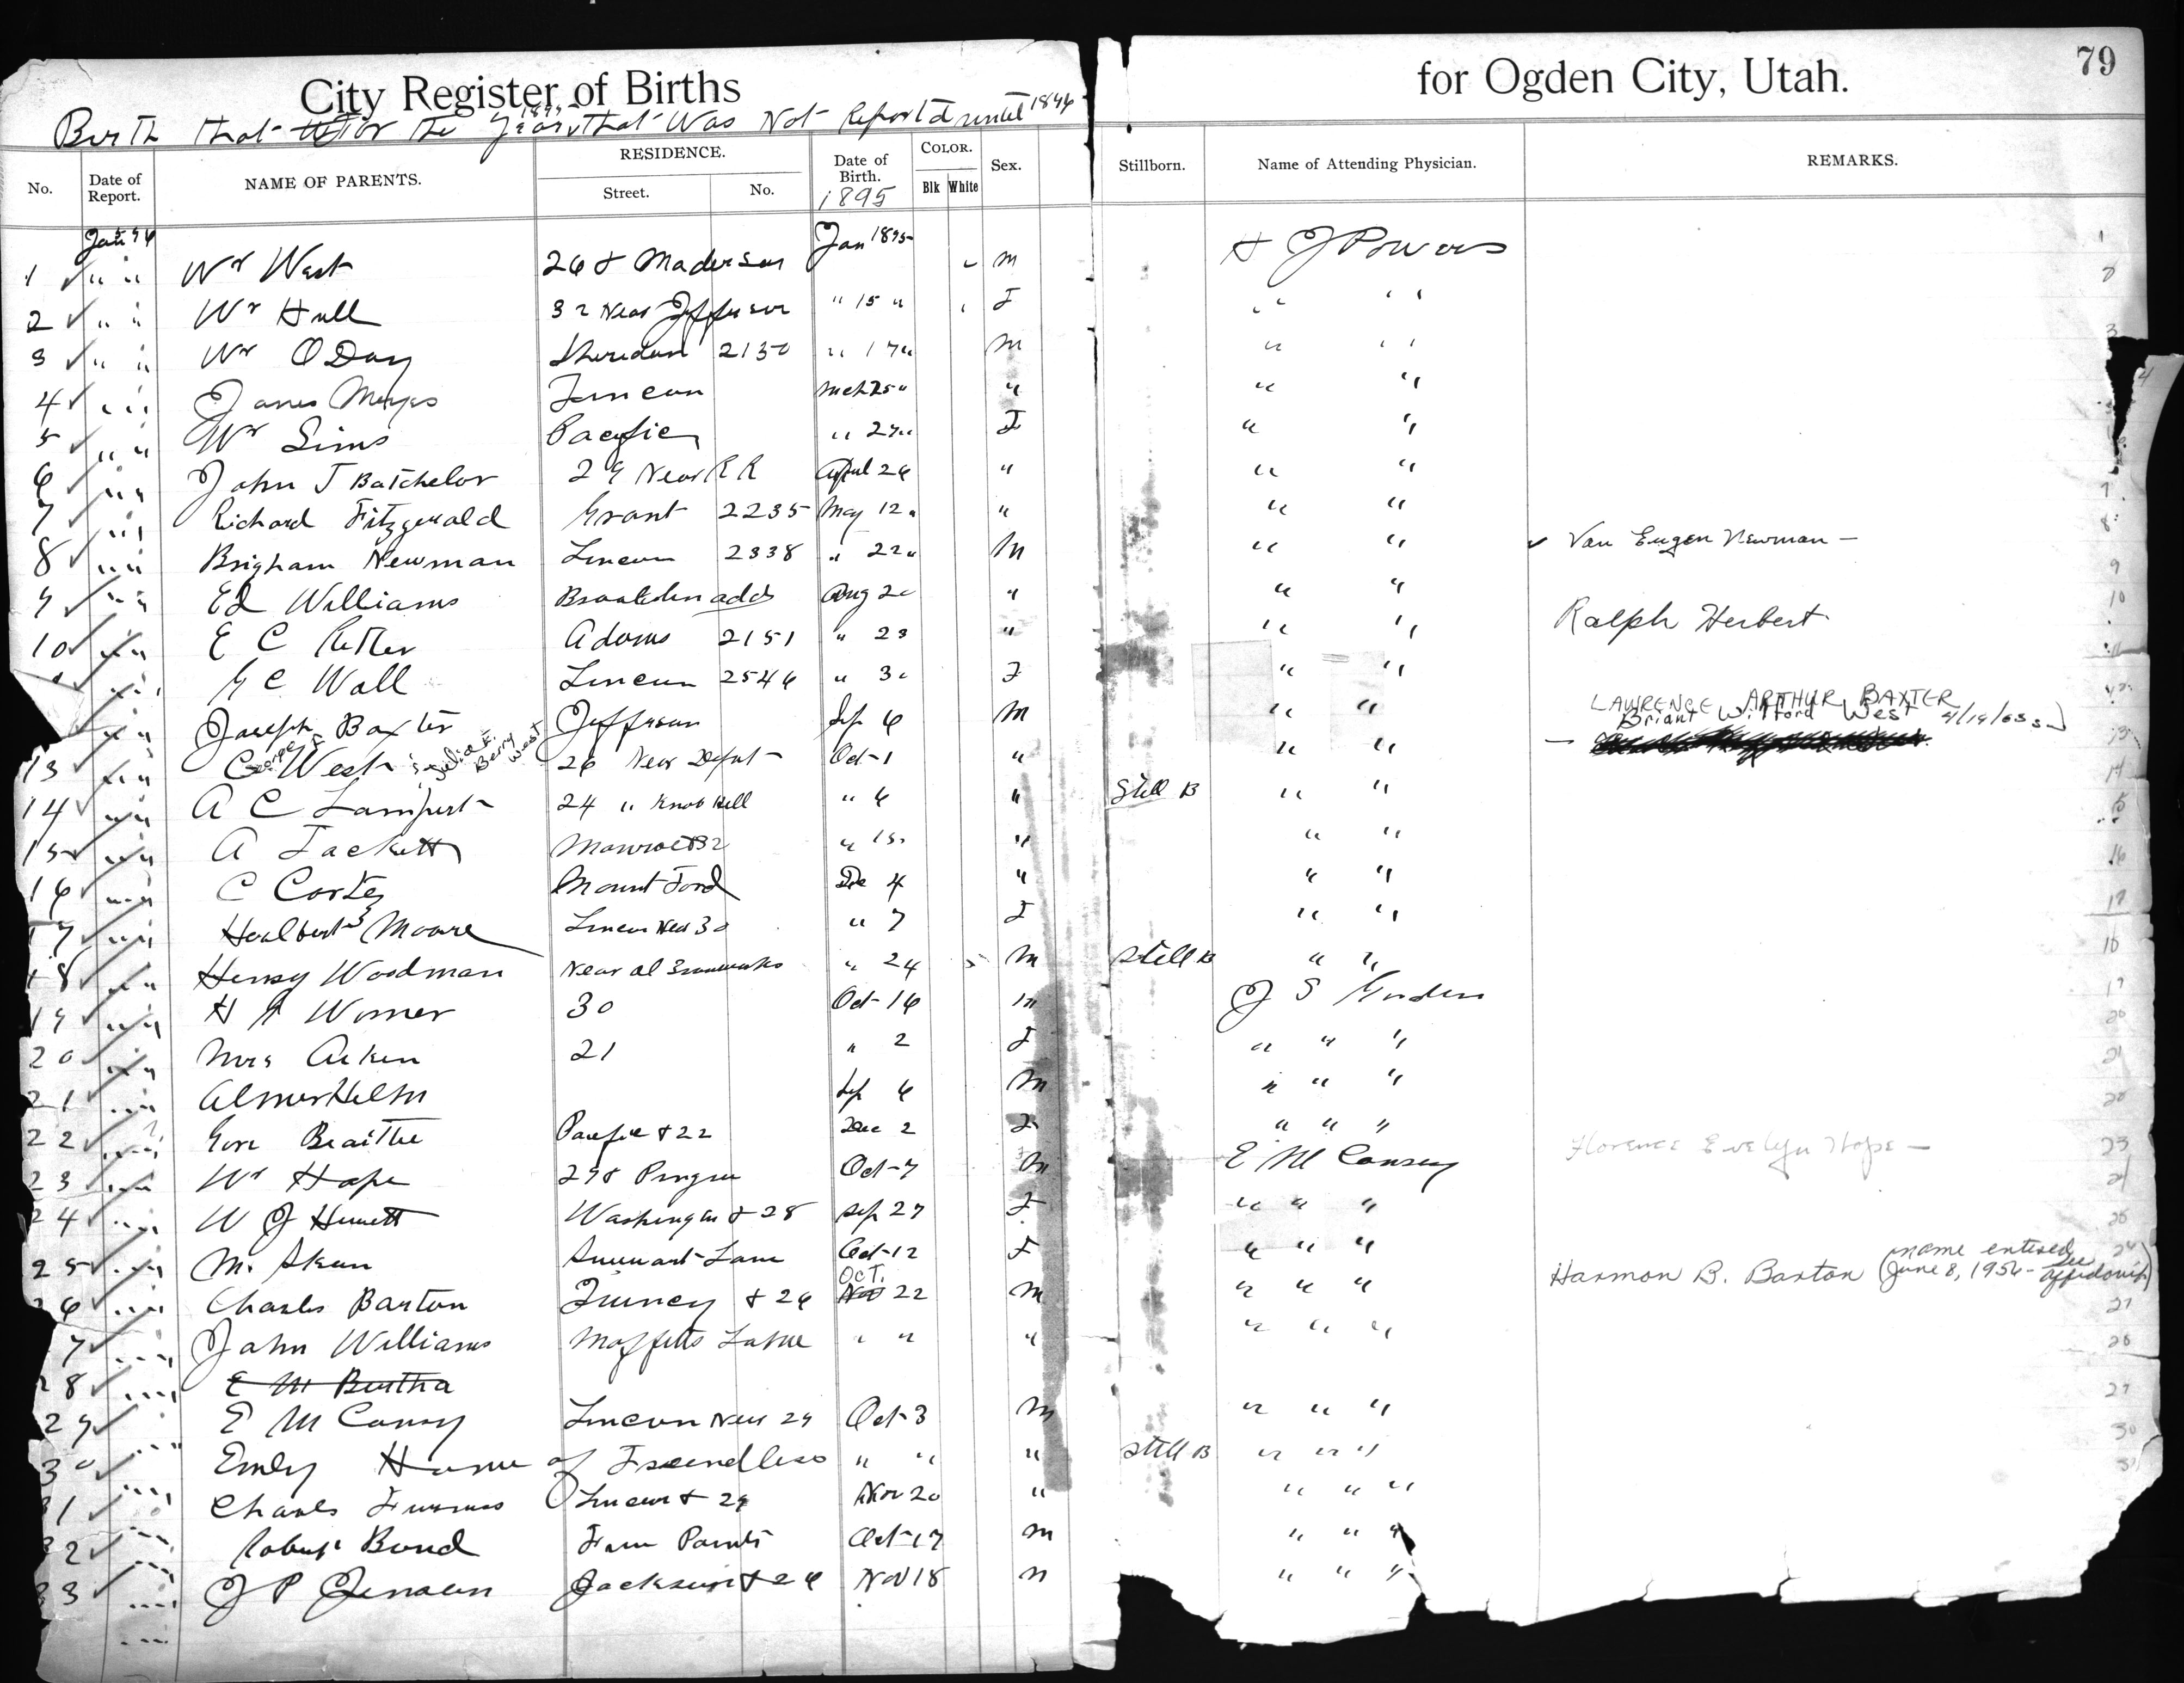 City Register of Births for Ogden City, Utah. 79
Birth that for the Year 1895 that Was Not Reported until 1896
No. Date of Report. NAME OF PARENTS. RESIDENCE. Street. No. Date of Birth. 1895 COLOR. Blk White Sex. Stillborn. Name of Attending Physician. REMARKS.
Jan 96 Jan 1895
1 " " Wr West 26 & Maderson M H J Powers
2 " " Wr Hull 32 Near Jefferson " 15 " F " "
3 " " Wr O Day Sheridan 2130 " 17 " M " "
4 " " James Meyas Lincoln Mch 25 " " " "
5 " " Wr Sims Pacific " 27 " F " "
6 " " John T Batchelor 29 Near R R April 26 " " "
7 " " Richard Fitzgerald Grant 2235 May 12 " " " "
8 " " Brigham Newman Lincoln 2338 " 22 " M " " Van Eugen Newman —
9 " " Ed Williams add Aug 20 " " "
10 " " E C Adams 2151 " 23 " " " Ralph Herbert
" " G C Wall Lincoln 2546 " 30 F " "
Joseph Baxter Jefferson Sep 6 M " " LAWRENCE ARTHUR BAXTER
13 " " George C West Julia F. Berry West 26 Near Depot Oct 1 " " " — Briant Wilford West 4/19/63
14 " " A C Lampert 24 " Knob Hill " 6 " Still B " "
15 " " A Tackett Monroe & 32 " 15 " " "
16 " " C Cortez Mount Ford De 4 " " "
17 " " Moore Lincoln Near 30 " 7 F " "
18 " " Henry Woodman Near " 24 M Still B " "
19 " " H Worner 30 Oct 16 M J S Gordon
20 " " Mrs Aiken 21 " 2 F " " "
21 " " Almer Helm Sep 6 M " " "
22 " " Braithe Pacific & 22 Dec 2 F " " "
23 " " Wr Hope 298 Oct 7 M E M Conroy Florence Evelyn Hope —
24 " " W J Washington & 28 Sep 27 F " " "
25 " " M. Lane Oct 12 F " " "
26 " " Charles Barton Quincy & 26 Oct. Nov 22 M " " " Harmon B. Barton (name entered June 8, 1956 - See affidavit)
7 " " John Williams Moffetts Lane " " " " " "
28 " " E M Bertha
29 E M Conroy Lincoln Near 29 Oct 3 M " " "
30 " " Emly Home of Freendless " " " Still B " " "
31 " " Charles Lincoln & 29 Nov 20 " " " "
32 " " Robert Bond Oct 17 M " " "
33 " " J P Jensen Jackson & 26 Nov 18 M " " "